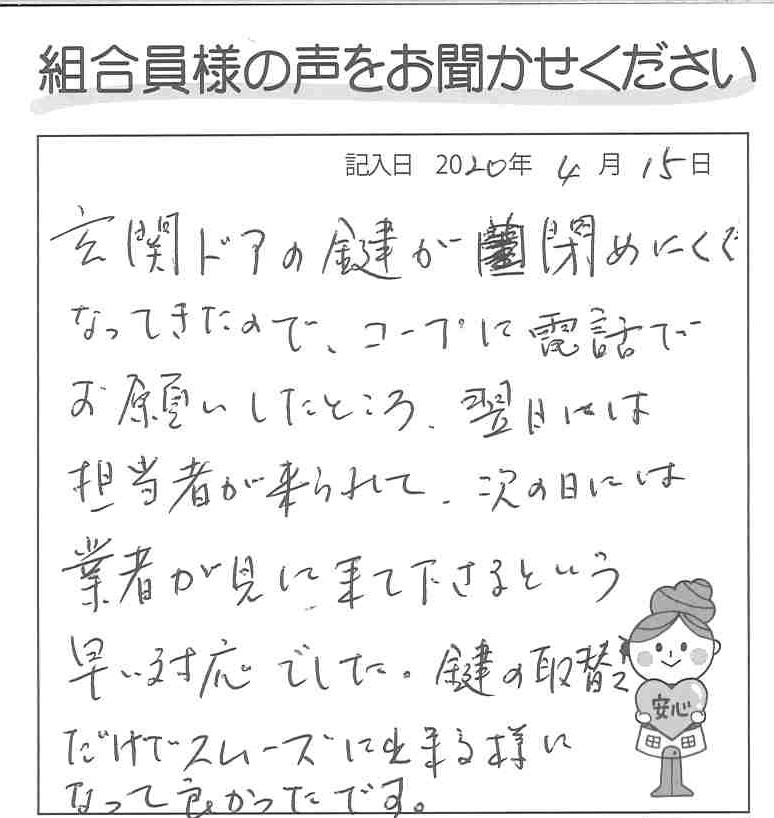 組合員様の声をお聞かせください
記入日 2020年 4月 15日
玄関ドアの鍵が閉めにくく
なってきたので、コープに電話で
お願いしたところ、翌日には
担当者が来られて、次の日には
業者が見に来て下さるという
早い対応でした。鍵の取替え
だけでスムーズに出来る様に
なって良かったです。
安心